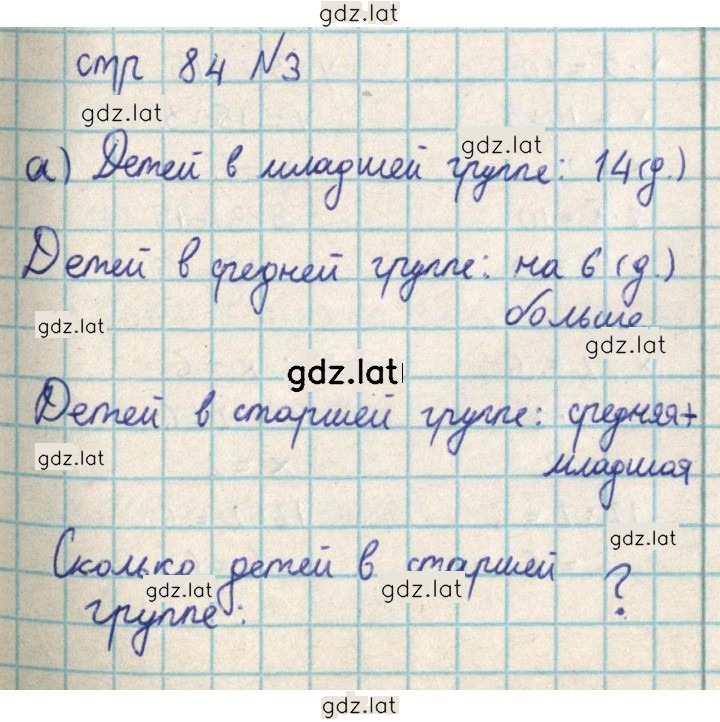 gdz.lat
стр 84 №3
gdz.lat
gdz.lat
а) Детей в младшей группе: 14(д.)
Детей в средней группе: на 6 (д.)
больше
gdz.lat
gdz.lat
gdz.lat
Детей в старшей группе: средняя+
младшая
gdz.lat
gdz.lat
Сколько детей в старшей ?
gdz.lat
gdz.lat
группе:
gdz.lat